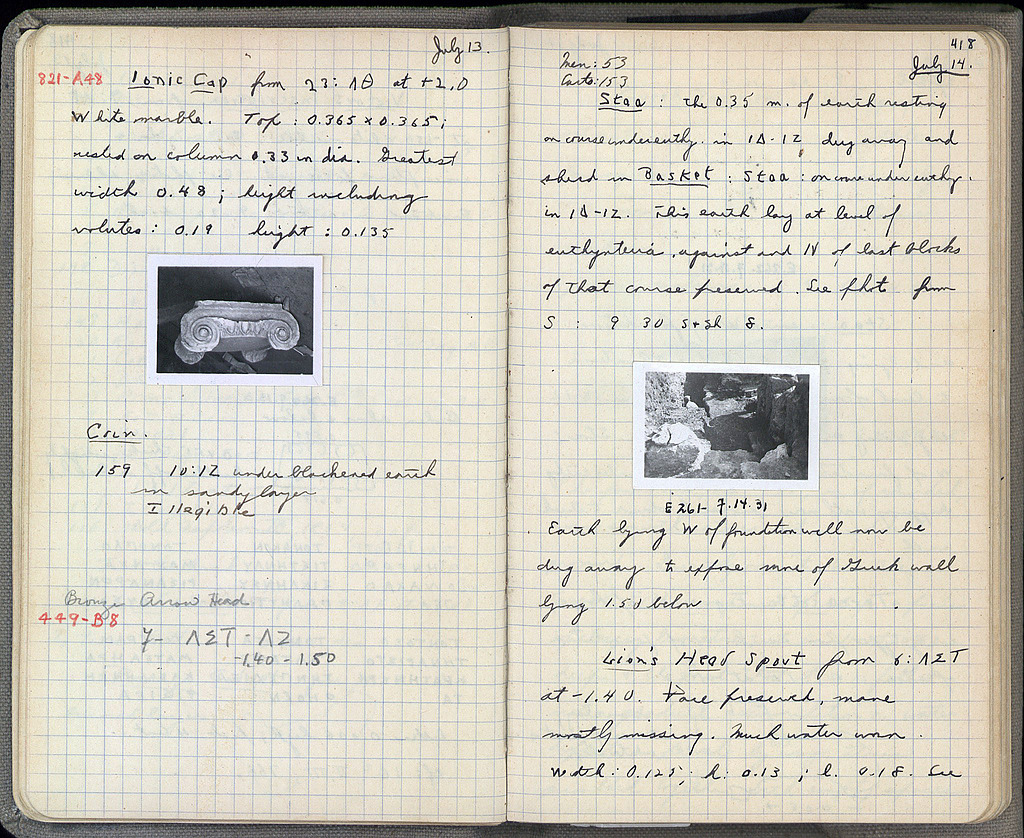 July 13.
821-A48 Ionic Cap from 23: ΛΘ at +2.0
White marble. Top: 0.365 x 0.365;
rested on column 0.33 in dia. Greatest
width 0.48; height including
volutes: 0.19 height: 0.135
Coin.
159 10:12 under blackened earth
in sandy layer
Illegible
Bronze Arrow Head
449-B8
7- ΛΣΤ - ΛΖ
-1.40 - 1.50
418
July 14.
Men: 53
Carts: 153
Stoa: The 0.35 m. of earth resting
on course under euthy. in 1Δ-12 dug away and
sherd in Basket: Stoa: on course under euthy.
in 1Δ-12. This earth lay at level of
euthynteria, against and N of last blocks
of that course preserved. See phot from
S: 9 30 S+Sh 8.
E261- 7.14.31
Earth lying W of foundation will now be
dug away to expose more of Greek wall
lying 1.50 below
Lion's Head Spout from 6: ΛΣΤ
at -1.40. Face preserved, mane
mostly missing. Much water worn.
Width: 0.125; h. 0.13; l. 0.18. See